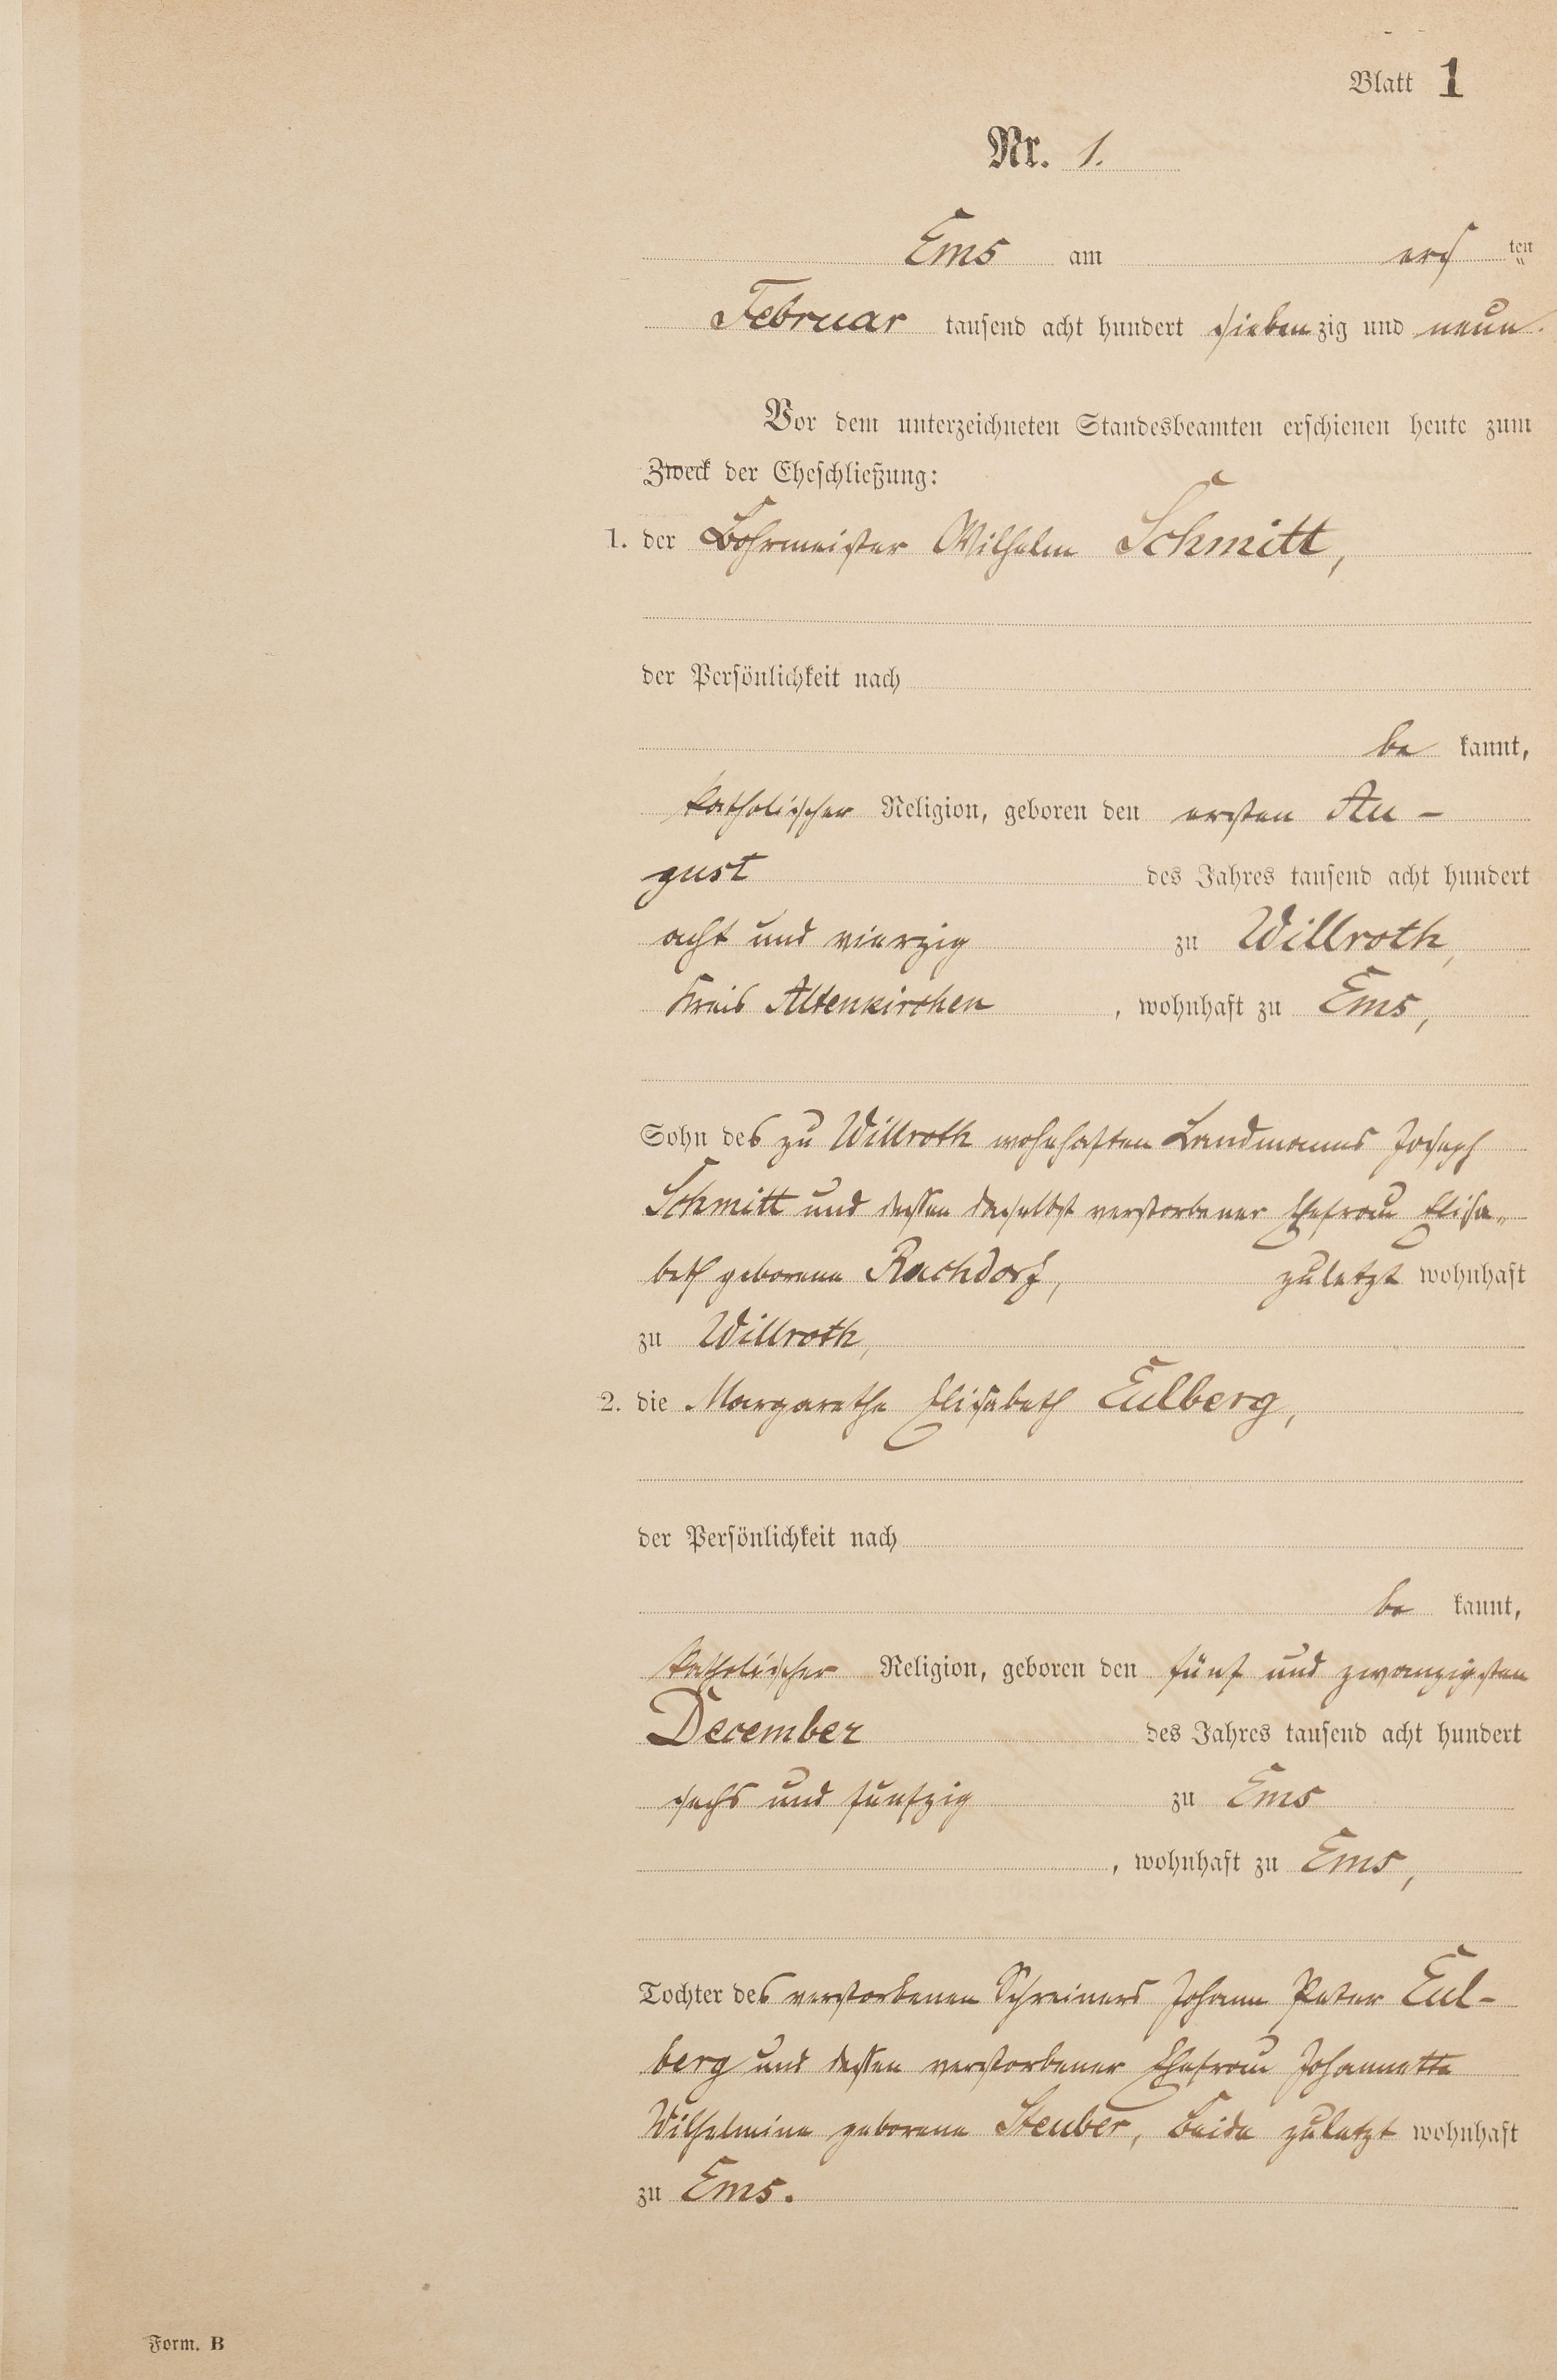 Blatt 1
Nr. 1.
Ems am ers ten
Februar tausend acht hundert siebenzig und neun.
Vor dem unterzeichneten Standesbeamten erschienen heute zum
Zweck der Eheschließung:
1. der Bohrmeister Wilhelm Schmitt,
der Persönlichkeit nach
be kannt,
katholischer Religion, geboren den ersten Au-
gust des Jahres tausend acht hundert
acht und vierzig zu Willroth,
Kreis Altenkirchen, wohnhaft zu Ems,
Sohn des zu Willroth wohnhaften Landmanns Joseph
Schmitt und dessen daselbst verstorbener Ehefrau Elisa-
beth geborene Rachdorf, zuletzt wohnhaft
zu Willroth,
2. die Margarethe Elisabeth Eulberg,
der Persönlichkeit nach
be kannt,
katholischer Religion, geboren den fünf und zwanzigsten
December des Jahres tausend acht hundert
sechs und funfzig zu Ems
, wohnhaft zu Ems,
Tochter des verstorbenen Schreiners Johann Peter Eul-
berg und dessen verstorbener Ehefrau Johannette
Wilhelmine geborene Steuber, beide zuletzt wohnhaft
zu Ems.
Form. B